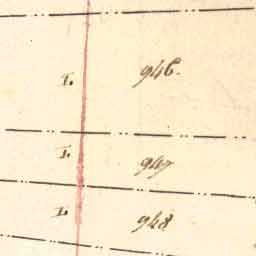 I. 946.
I. 947
I. 948